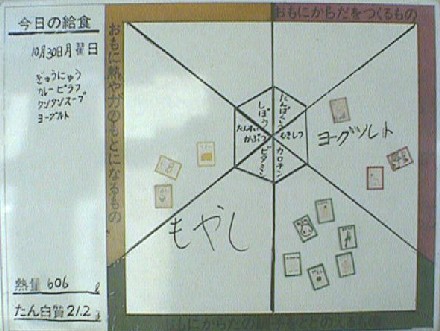 今日の給食
10月30日月曜日
ぎゅうにゅう
カレーピラフ
ワンタンスープ
ヨーグルト
熱量 606
たん白質 21.2
おもに熱や力のもとになるもの
おもにからだをつくるもの
しぼう
たんぱくしつ
たんすいかぶつ
むきしつ
ビタミン
カロチン
ヨーグルト
もやし